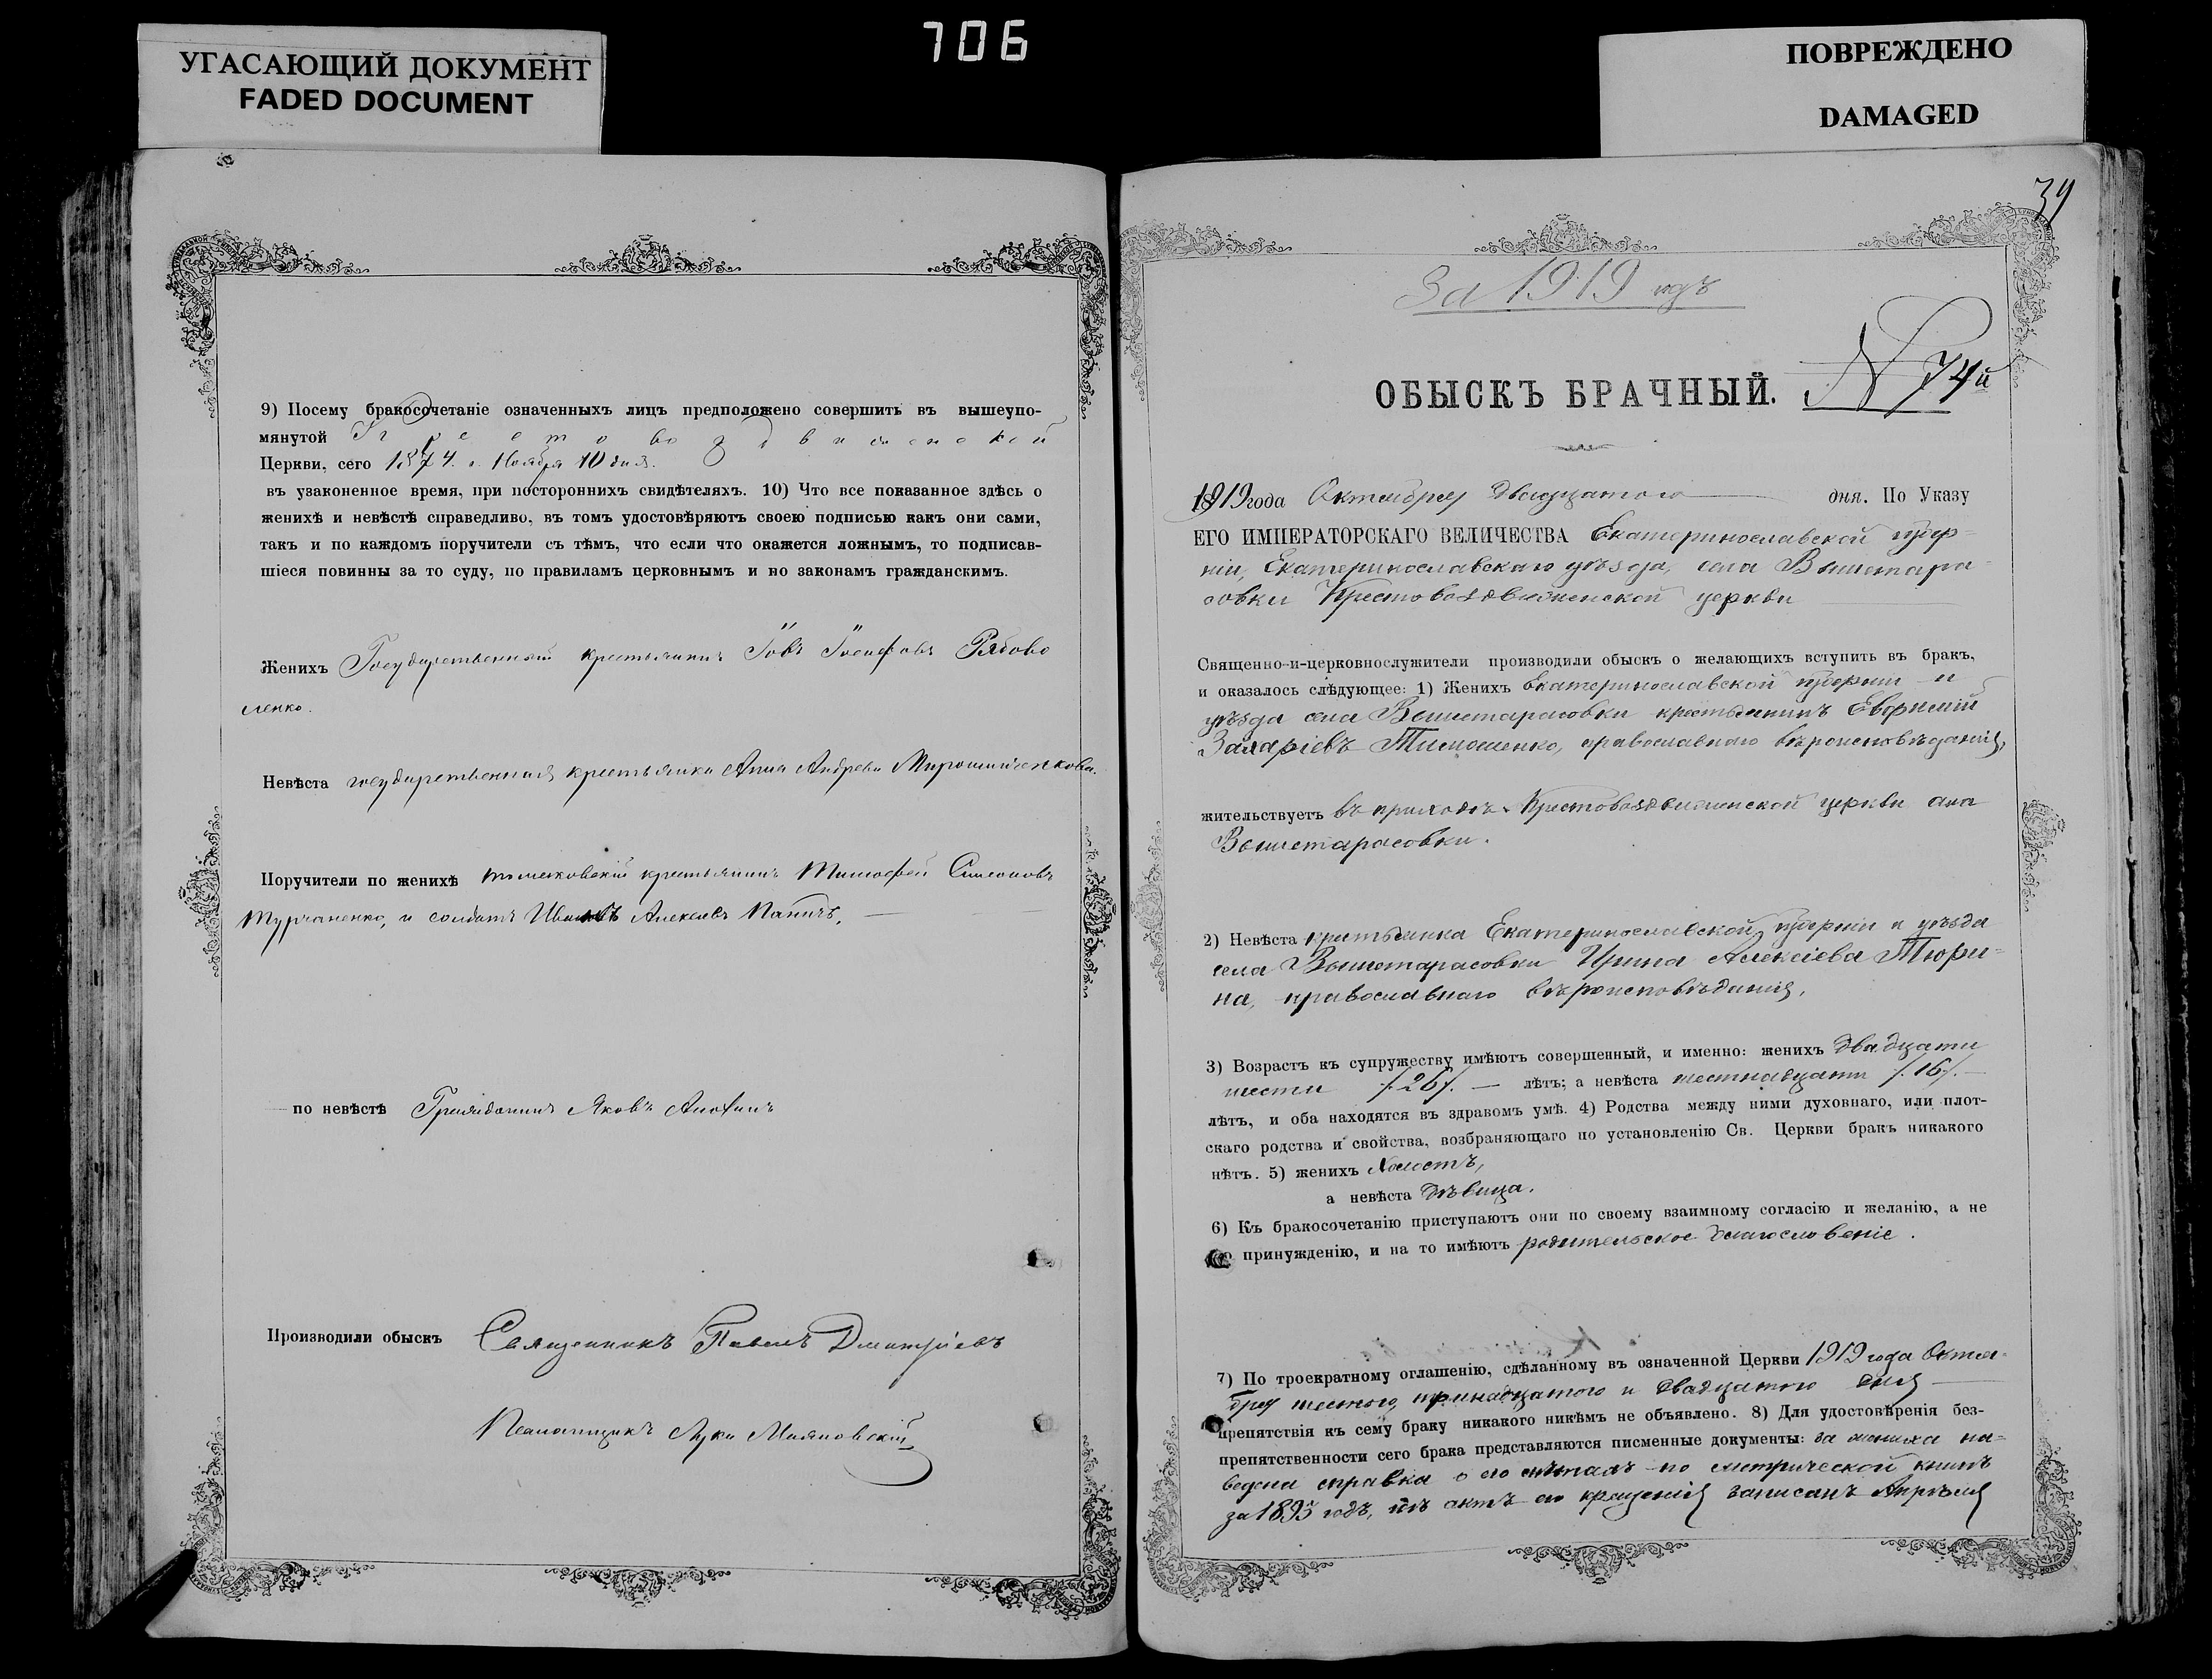 706
УГАСАЮЩИЙ ДОКУМЕНТ
FADED DOCUMENT
ПОВРЕЖДЕНО
DAMAGED
9) Посему бракосочетаніе означенныхъ лицъ предположено совершить въ вышеупо-
мянутой Крестовоздвиженской
Церкви, сего 1874 г. Ноября 10 дня.
въ узаконенное время, при постороннихъ свидѣтеляхъ. 10) Что все показанное здѣсь о
женихѣ и невѣстѣ справедливо, въ томъ удостовѣряютъ своею подписью какъ они сами,
такъ и по каждомъ поручители съ тѣмъ, что если что окажется ложнымъ, то подписав-
шіеся повинны за то суду, по правиламъ церковнымъ и по законамъ гражданскимъ.
Женихъ Государственный крестьянинъ Іовъ Іосифовъ Рябово
ленко.
Невѣста государственная крестьянка Анна Андреева Мирошниченкова.
Поручители по женихѣ крестьянинъ Тимофей Симеоновъ
Турчаненко, и солдатъ Иванъ Алексѣевъ Папичъ.
по невѣстѣ Гражданинъ Яковъ
Производили обыскъ Священникъ Павелъ Дмитріевъ
Псаломщикъ Лука
39
За 1919 годъ
ОБЫСКЪ БРАЧНЫЙ. N 74й
1919 года Октября двадцатого дня. По Указу
ЕГО ИМПЕРАТОРСКАГО ВЕЛИЧЕСТВА Екатеринославской губер-
ніи, Екатеринославскаго уѣзда, села Вышетара-
совки Крестовоздвиженской церкви
Священно-и-церковнослужители производили обыскъ о желающихъ вступить въ бракъ,
и оказалось слѣдующее: 1) Женихъ Екатеринославской губерніи и
уѣзда села Вышетарасовки крестьянинъ Евфимій
Захаріевъ Тимошенко, православнаго вѣроисповѣданія,
жительствуетъ въ приходѣ Крестовоздвиженской церкви села
Вышетарасовки.
2) Невѣста крестьянка Екатеринославской губерніи и уѣзда
села Вышетарасовки Ирина Алексіева Тюри-
на, православнаго вѣроисповѣданія.
3) Возрастъ къ супружеству имѣютъ совершенный, и именно: женихъ двадцати
шести /.26/. — лѣтъ; а невѣста шестнадцати /.16/. —
лѣтъ, и оба находятся въ здравомъ умѣ. 4) Родства между ними духовнаго, или плот-
скаго родства и свойства, возбраняющаго по установленію Св. Церкви бракъ никакого
нѣтъ. 5) женихъ холостъ,
а невѣста дѣвица.
6) Къ бракосочетанію приступаютъ они по своему взаимному согласію и желанію, а не
по принужденію, и на то имѣютъ родительское благословеніе.
7) По троекратному оглашенію, сдѣланному въ означенной Церкви 1919 года Октя-
бря шестого, тринадцатого и двадцатого дня
препятствія къ сему браку никакого никѣмъ не объявлено. 8) Для удостовѣренія без-
препятственности сего брака представляются писменные документы: за жениха на-
ведена справка о его лѣтахъ по метрической книгѣ
за 1893 годъ, гдѣ актъ его крещенія записанъ Апрѣля